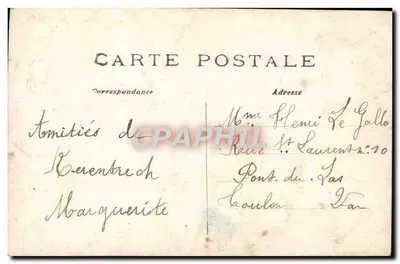 CARTE POSTALE
Correspondance
Adresse
Amitiés de
Kerentrech
Marguerite
Mme Henri Le Gallo
St Laurent no 10
Pont du Las
Toulon Var
CPAPHIL